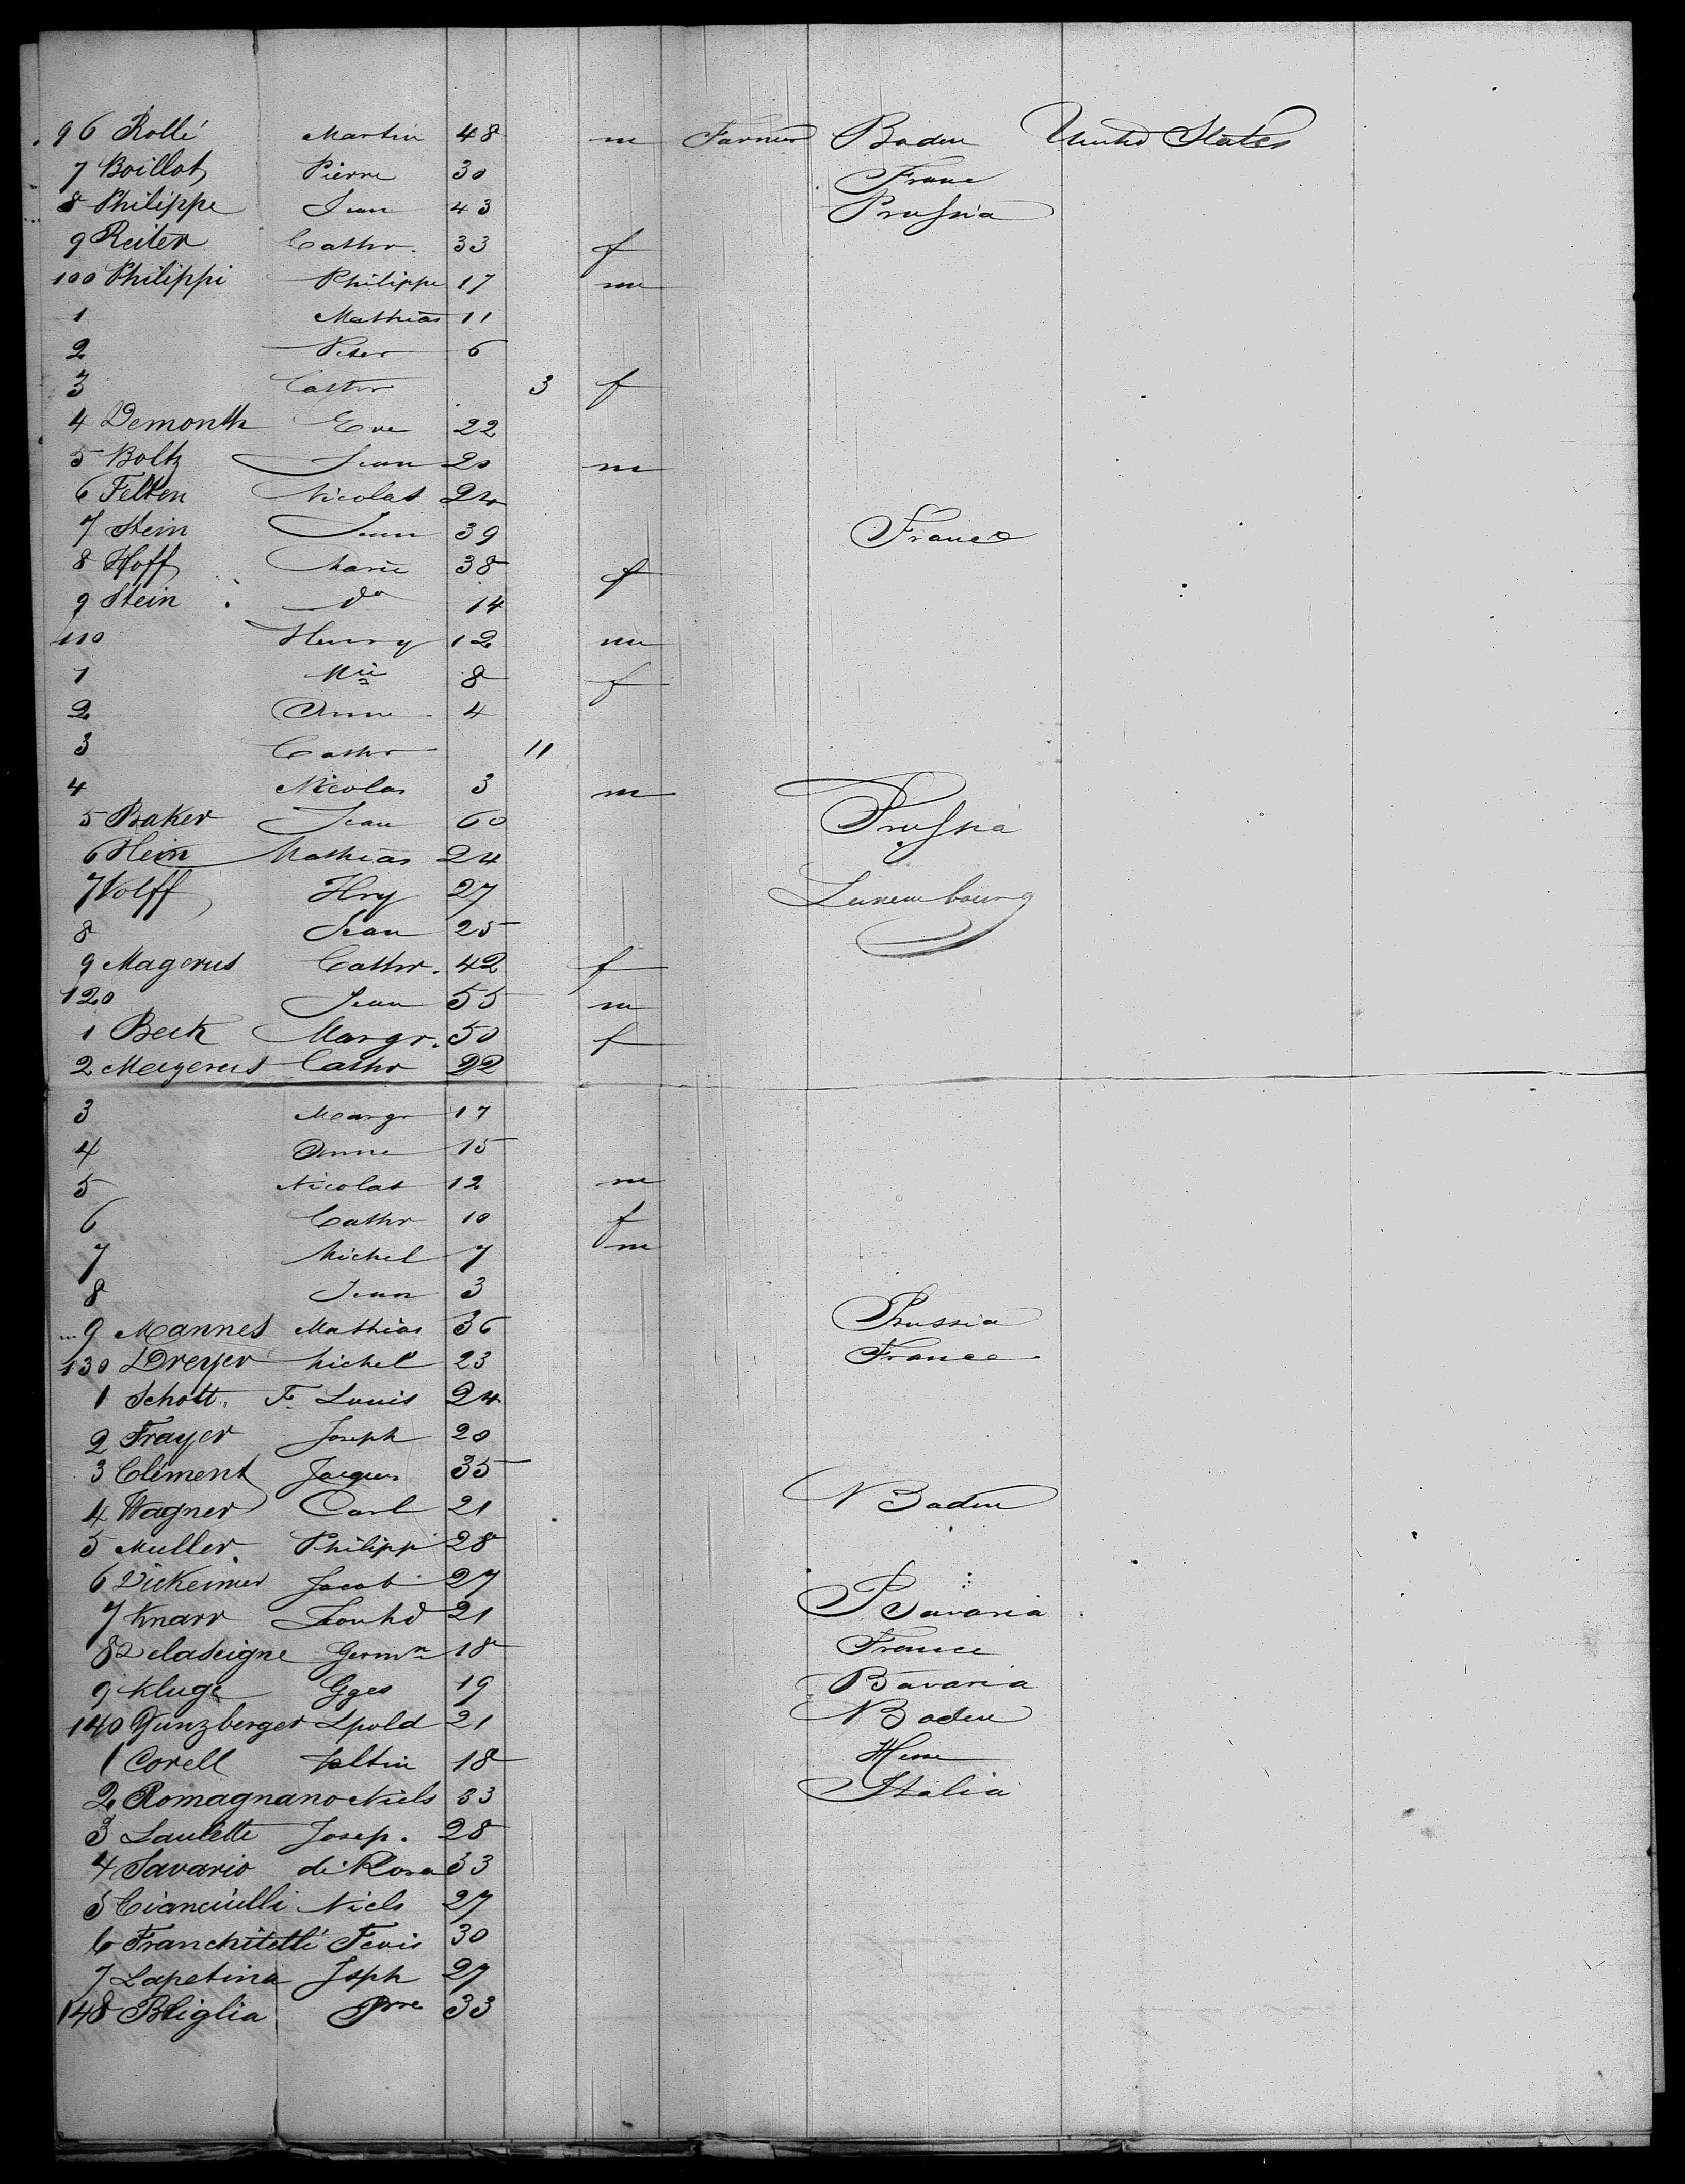 96 Rollé Martin 48 m Farmer Baden United States
7 Boillot Pierre 30 France
8 Philippe Jean 43 Prussia
9 Reiter Cathr. 33 f
100 Philippi Philippe 17 m
1 Mathias 11
2 Peter 6
3 Cathr 3 f
4 Demonth Eve 22
5 Boltz Jean 20 m
6 Felten Nicolas 24
7 Stein Jean 39 France
8 Hoff Marie 38 f
9 Stein do 14
110 Henry 12 m
1 Mie 8 f
2 Anne 4
3 Cathr 11
4 Nicolas 3 m
5 Baker Jean 60 Prussia
6 Hein Mathias 24
7 Volff Hry 27 Luxembourg
8 Jean 25
9 Magerus Cathr. 42 f
120 Jean 55 m
1 Beck Margr. 50 f
2 Mayerus Cathr 22
3 Margr 17
4 Anne 15
5 Nicolas 12 m
6 Cathr 10 f
7 Michel 7 m
8 Jean 3
9 Mannes Mathias 36 Prussia
130 Dreyer Michel 23 France
1 Schott. F. Louis 24
2 Frayer Joseph 20
3 Clément Jacques 35
4 Wagner Carl 21 Baden
5 Muller Philippi 28
6 Dickeimer Jacob 27
7 Knarr Leonhd 21 Bavaria
8 Delaseigne Germn 18 France
9 Kluge Gges 19 Bavaria
140 Gunzberger Lpold 21 Baden
1 Corell Valtin 18 Hesse
2 Romagnano Niels 33 Italia
3 Laulette Josep. 28
4 Savario di Rosa 33
5 Cianciulli Niels 27
6 Franchitetti 30
7 Lapetina Jsph 27
148 Bliglia Prre 33